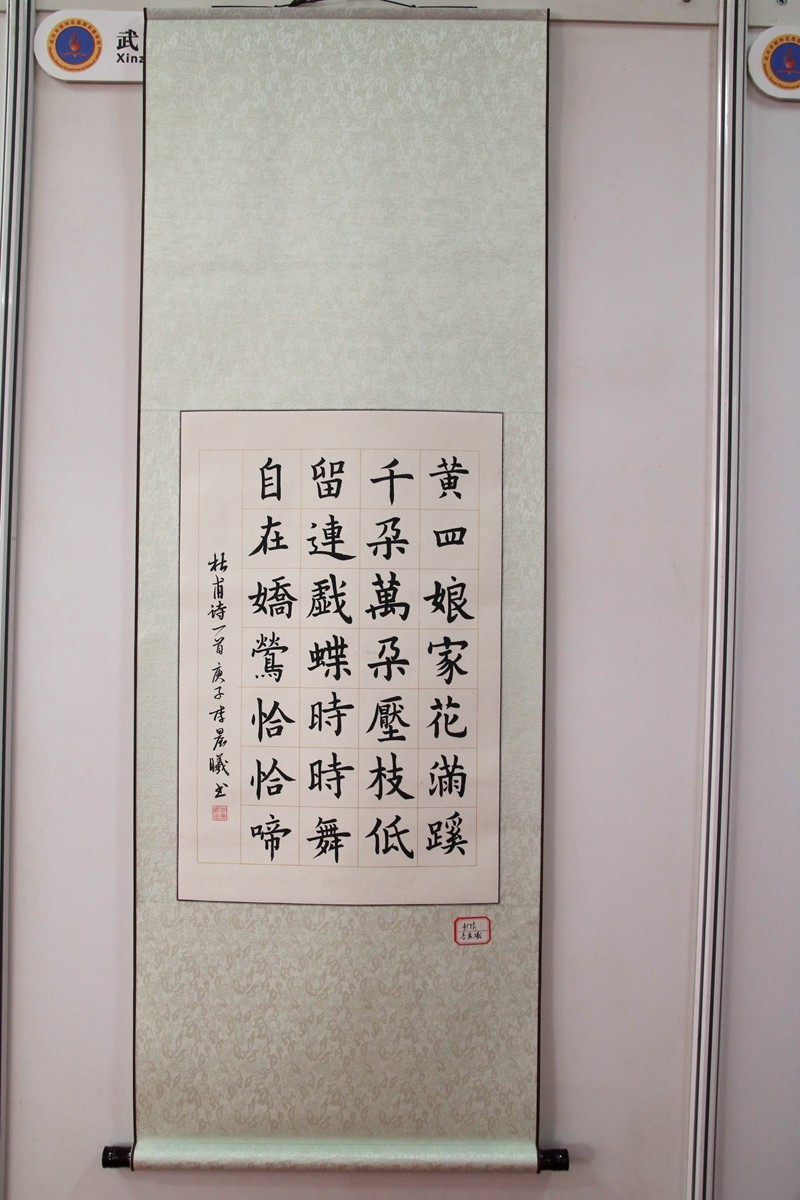 武
Xinz
黄四娘家花滿蹊
千朶萬朶壓枝低
留連戲蝶時時舞
自在嬌鶯恰恰啼
杜甫诗一首庚子李晨曦书